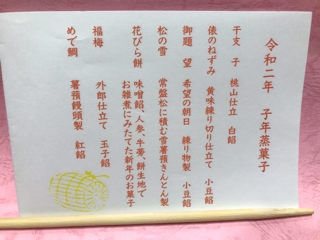 令和二年 子年蒸菓子
干支 子 桃山仕立 白餡
俵のねずみ 黄味練り切り仕立て 小豆餡
御題 望 希望の朝日 練り物製 小豆餡
松の雪 常盤松に積む雪薯蕷きんとん製
花びら餅 味噌餡、人参、牛蒡、餅生地で
お雑煮にみたてた新年のお菓子
福梅 外郎仕立て 玉子餡
めで鯛 薯蕷饅頭製 紅餡